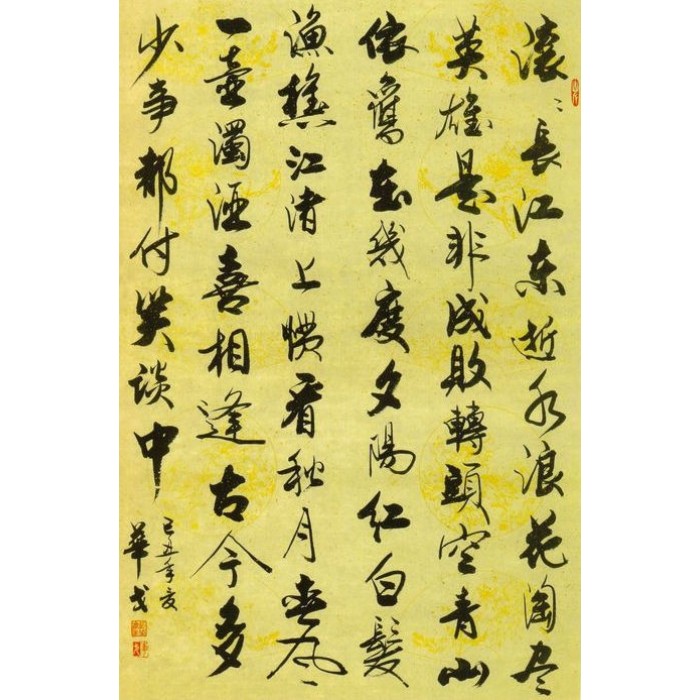 滚〻長江东逝水浪花淘尽
英雄是非成敗轉頭空青山
依舊在幾度夕陽红白髮
渔樵江渚上惯看秋月春风
一壶濁酒喜相逢古今多
少事都付笑谈中
己丑年夏
華戈